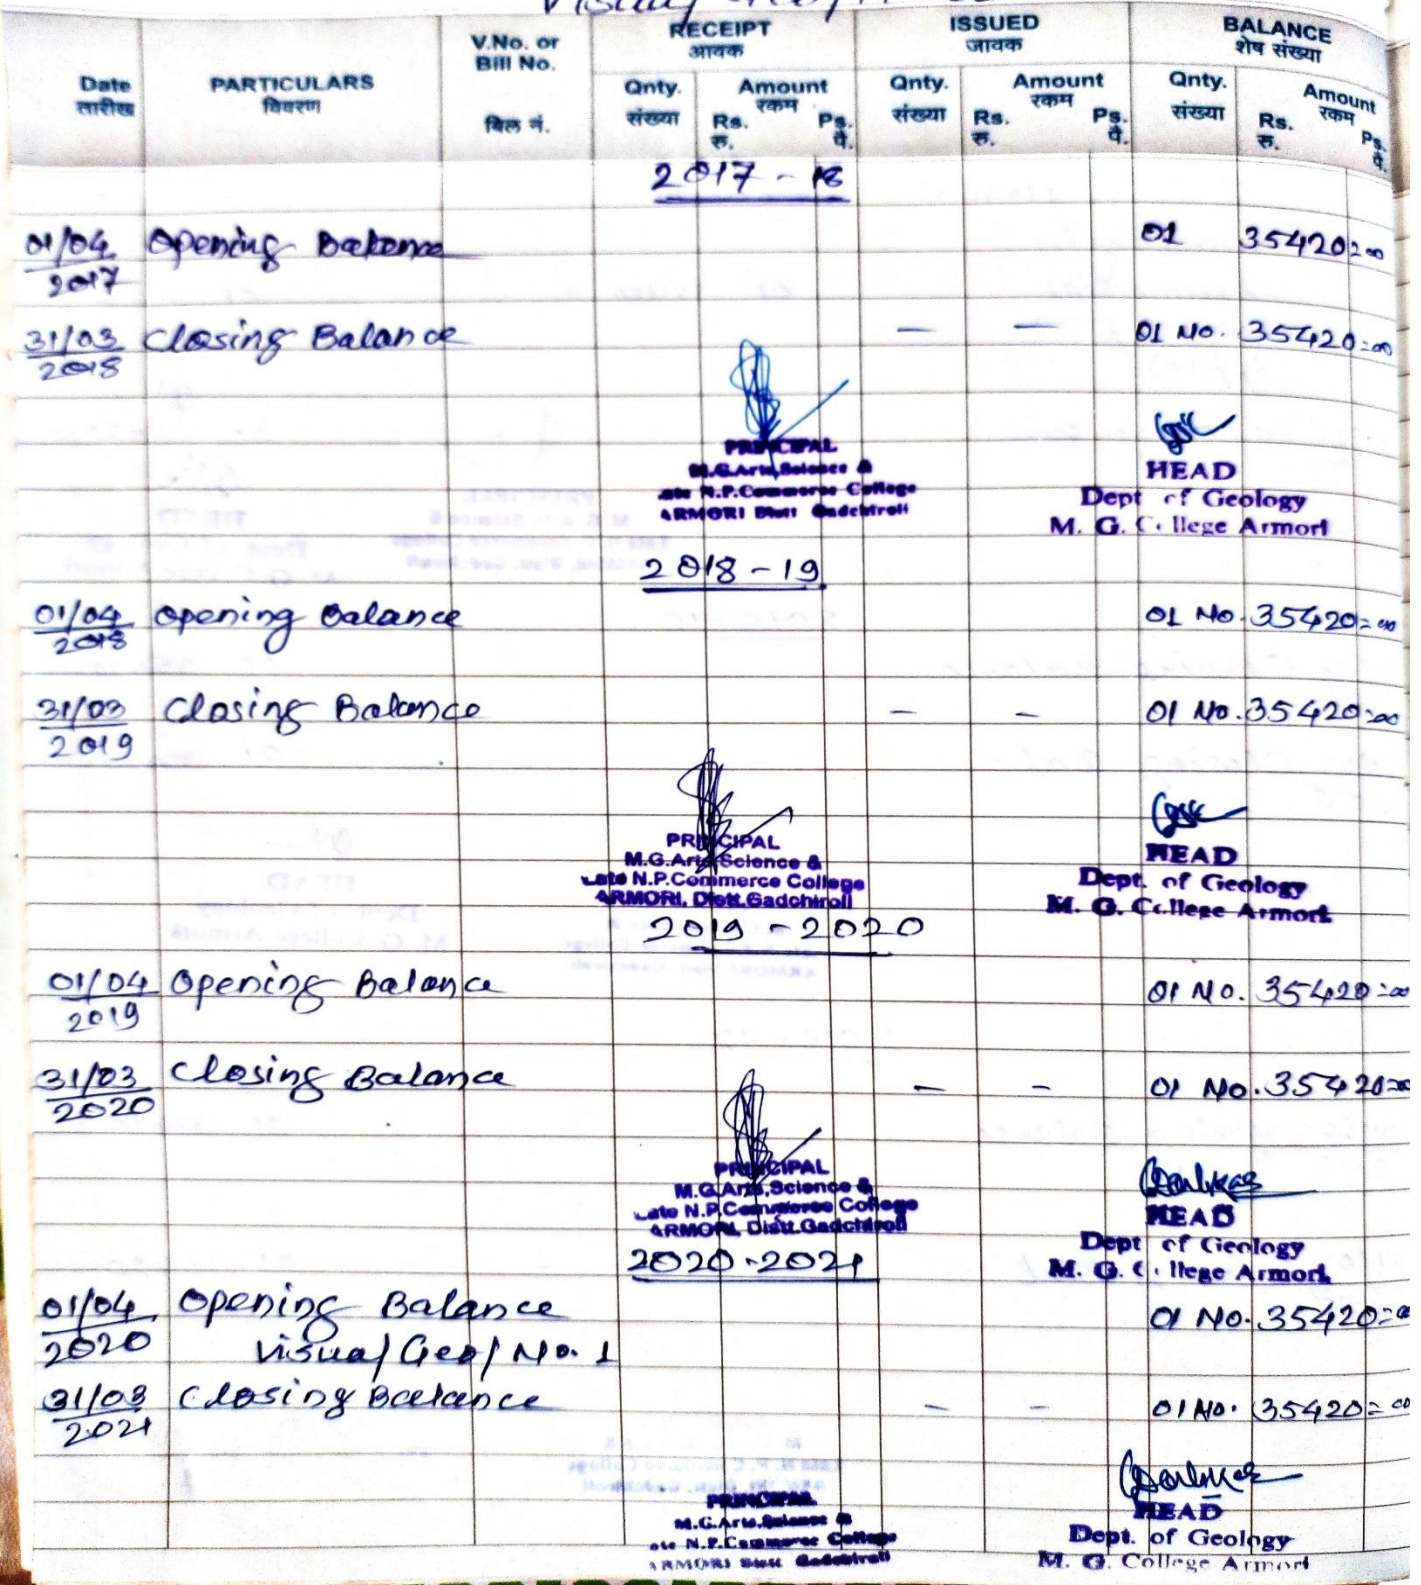 RECEIPT ISSUED BALANCE
आवक जावक शेष संख्या
Date PARTICULARS V.No. or Bill No. Qnty. Amount Qnty. Amount Qnty. Amount
तारीख विवरण बिल नं. संख्या रकम संख्या रकम संख्या रकम
Rs. Ps. Rs. Ps. Rs. Ps.
रु. पै. रु. पै. रु. पै.
2017 - 18
01/04 2017 Opening Balance 01 35420=00
31/03 2018 Closing Balance — — 01 No. 35420=00
PRINCIPAL
M.G.Arts,Science &
Late N.P.Commerce College
ARMORI Distt Gadchiroli
HEAD
Dept of Geology
M. G. College Armori
2018 - 19
01/04 2018 Opening Balance 01 No. 35420=00
31/03 2019 Closing Balance — — 01 No. 35420=00
PRINCIPAL
M.G.Arts Science &
Late N.P.Commerce College
ARMORI, Distt.Gadchiroli
HEAD
Dept. of Geology
M. G. College Armori
2019 - 2020
01/04 2019 Opening Balance 01 No. 35420=00
31/03 2020 Closing Balance — — 01 No. 35420=00
PRINCIPAL
M.G.Arts,Science &
Late N.P.Commerce College
ARMORI, Distt.Gadchiroli
HEAD
Dept of Geology
M. G. College Armori
2020-2021
01/04 2020 Opening Balance 01 No. 35420=00
Visual/Geo/No. 1
31/03 2021 Closing Balance — — 01 No. 35420=00
PRINCIPAL
M.G.Arts,Science &
Late N.P.Commerce College
ARMORI Distt Gadchiroli
HEAD
Dept. of Geology
M. G. College Armori